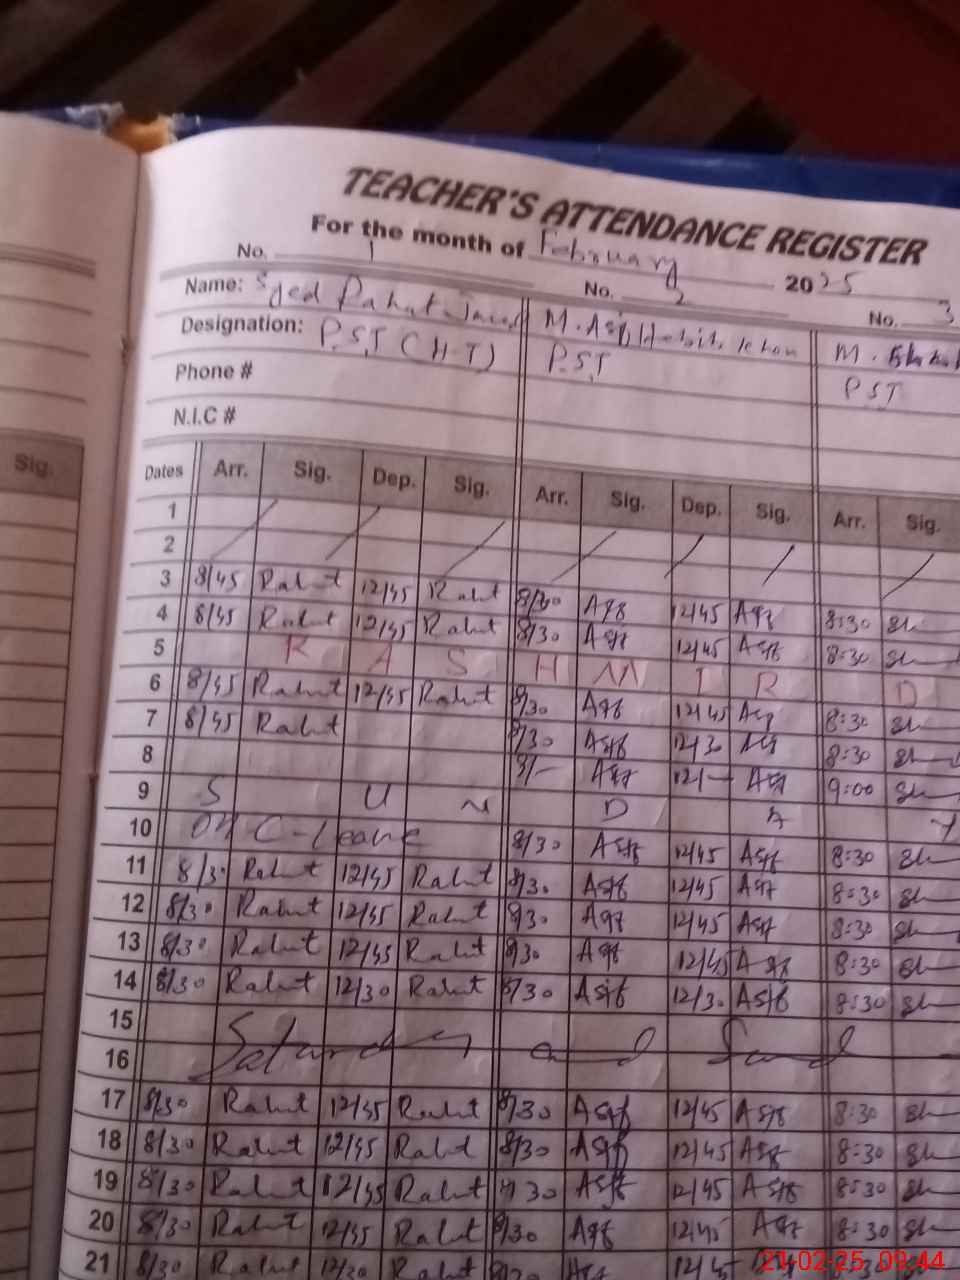 TEACHER'S ATTENDANCE REGISTER
For the month of February 2025
No. 1 No. 2 No. 3
Name: Syed Rahat M. Asif Habib Khan M.
Designation: P.S.T (H-T) P.S.T P S T
Phone #
N.I.C #
Sig.
Dates Arr. Sig. Dep. Sig. Arr. Sig. Dep. Sig. Arr. Sig.
1
2
3 8/45 Rahat 12/45 Rahat 8/30 Asif 12/45 Asif 8:30
4 8/45 Rahat 12/45 Rahat 8/30 Asif 12/45 Asif 8:30
5 K A S H M I R D
6 8/45 Rahat 12/45 Rahat 8/30 Asif 12/45 Asif 8:30
7 8/45 Rahat 8/30 Asif 12/30 Asif 8:30
8 9/- Asif 12/- Asif 9:00
9 S U N D A Y
10 On C-Leave 8/30 Asif 12/45 Asif 8:30
11 8/30 Rahat 12/45 Rahat 8/30 Asif 12/45 Asif 8:30
12 8/30 Rahat 12/45 Rahat 8/30 Asif 12/45 Asif 8:30
13 8/30 Rahat 12/45 Rahat 8/30 Asif 12/45 Asif 8:30
14 8/30 Rahat 12/30 Rahat 8/30 Asif 12/30 Asif 8:30
15 Saturday and Sund
16
17 8/30 Rahat 12/45 Rahat 8/30 Asif 12/45 Asif 8:30
18 8/30 Rahat 12/45 Rahat 8/30 Asif 12/45 Asif 8:30
19 8/30 Rahat 12/45 Rahat 8/30 Asif 12/45 Asif 8:30
20 8/30 Rahat 12/45 Rahat 8/30 Asif 12/45 Asif 8:30
21 8/30 Rahat 12/30 Rahat 8/30 Asif
21-02-25 09:44